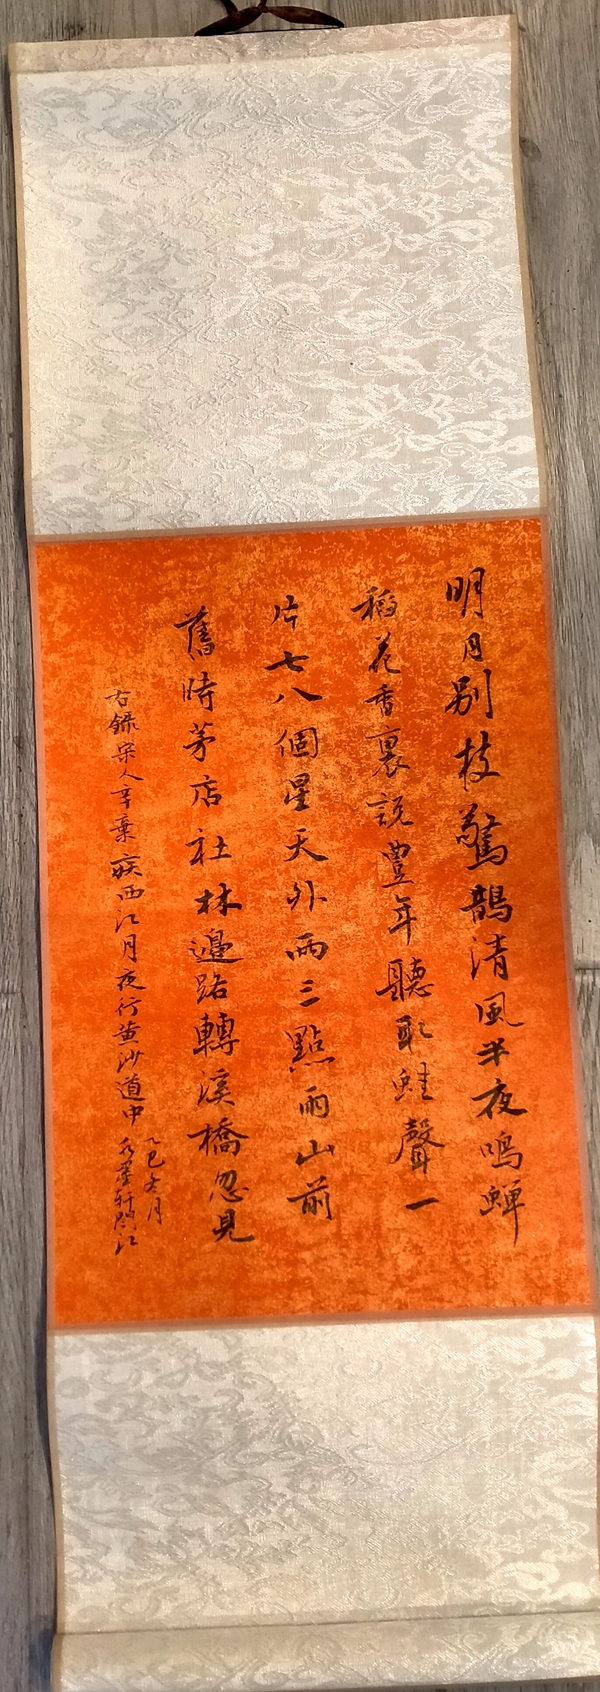 明月別枝驚鵲清風半夜鳴蟬
稻花香裏説豐年聽取蛙聲一
片七八個星天外兩三點雨山前
舊時茅店社林邊路轉溪橋忽見
右録宋人辛棄疾西江月夜行黄沙道中
乙巳七月
軒閩江